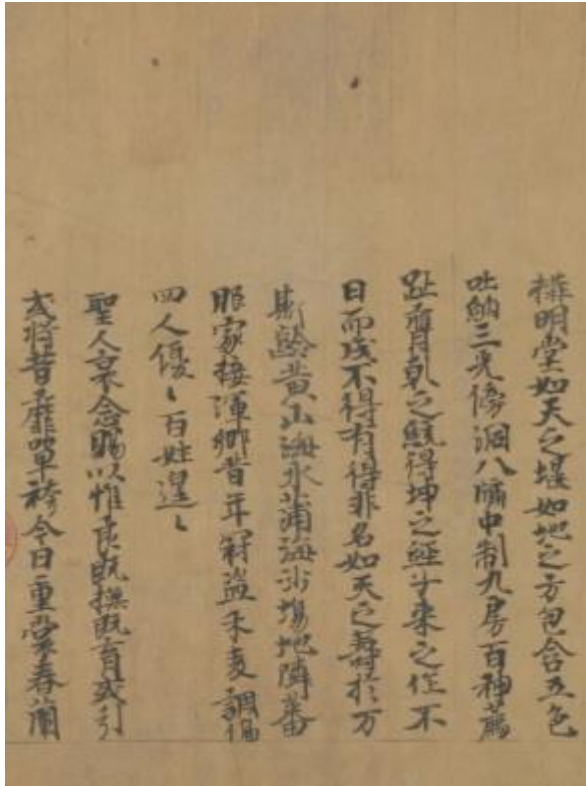 構明堂如天之堰如地之方包含五色
吐納三光傍洞八牖中制九房百神薦
趾膺乹之統得坤之經子來之作不
日而成不得有得非名如天之壽於万
斯齡黃山海水蒲海沙場地隣蕃
服家接渾鄉昔年寇盜禾麦調傷
四人優〻百姓遑〻
聖人哀念賜以惟良既撫既育或引
或將昔靡單袴今日重裳春蘭